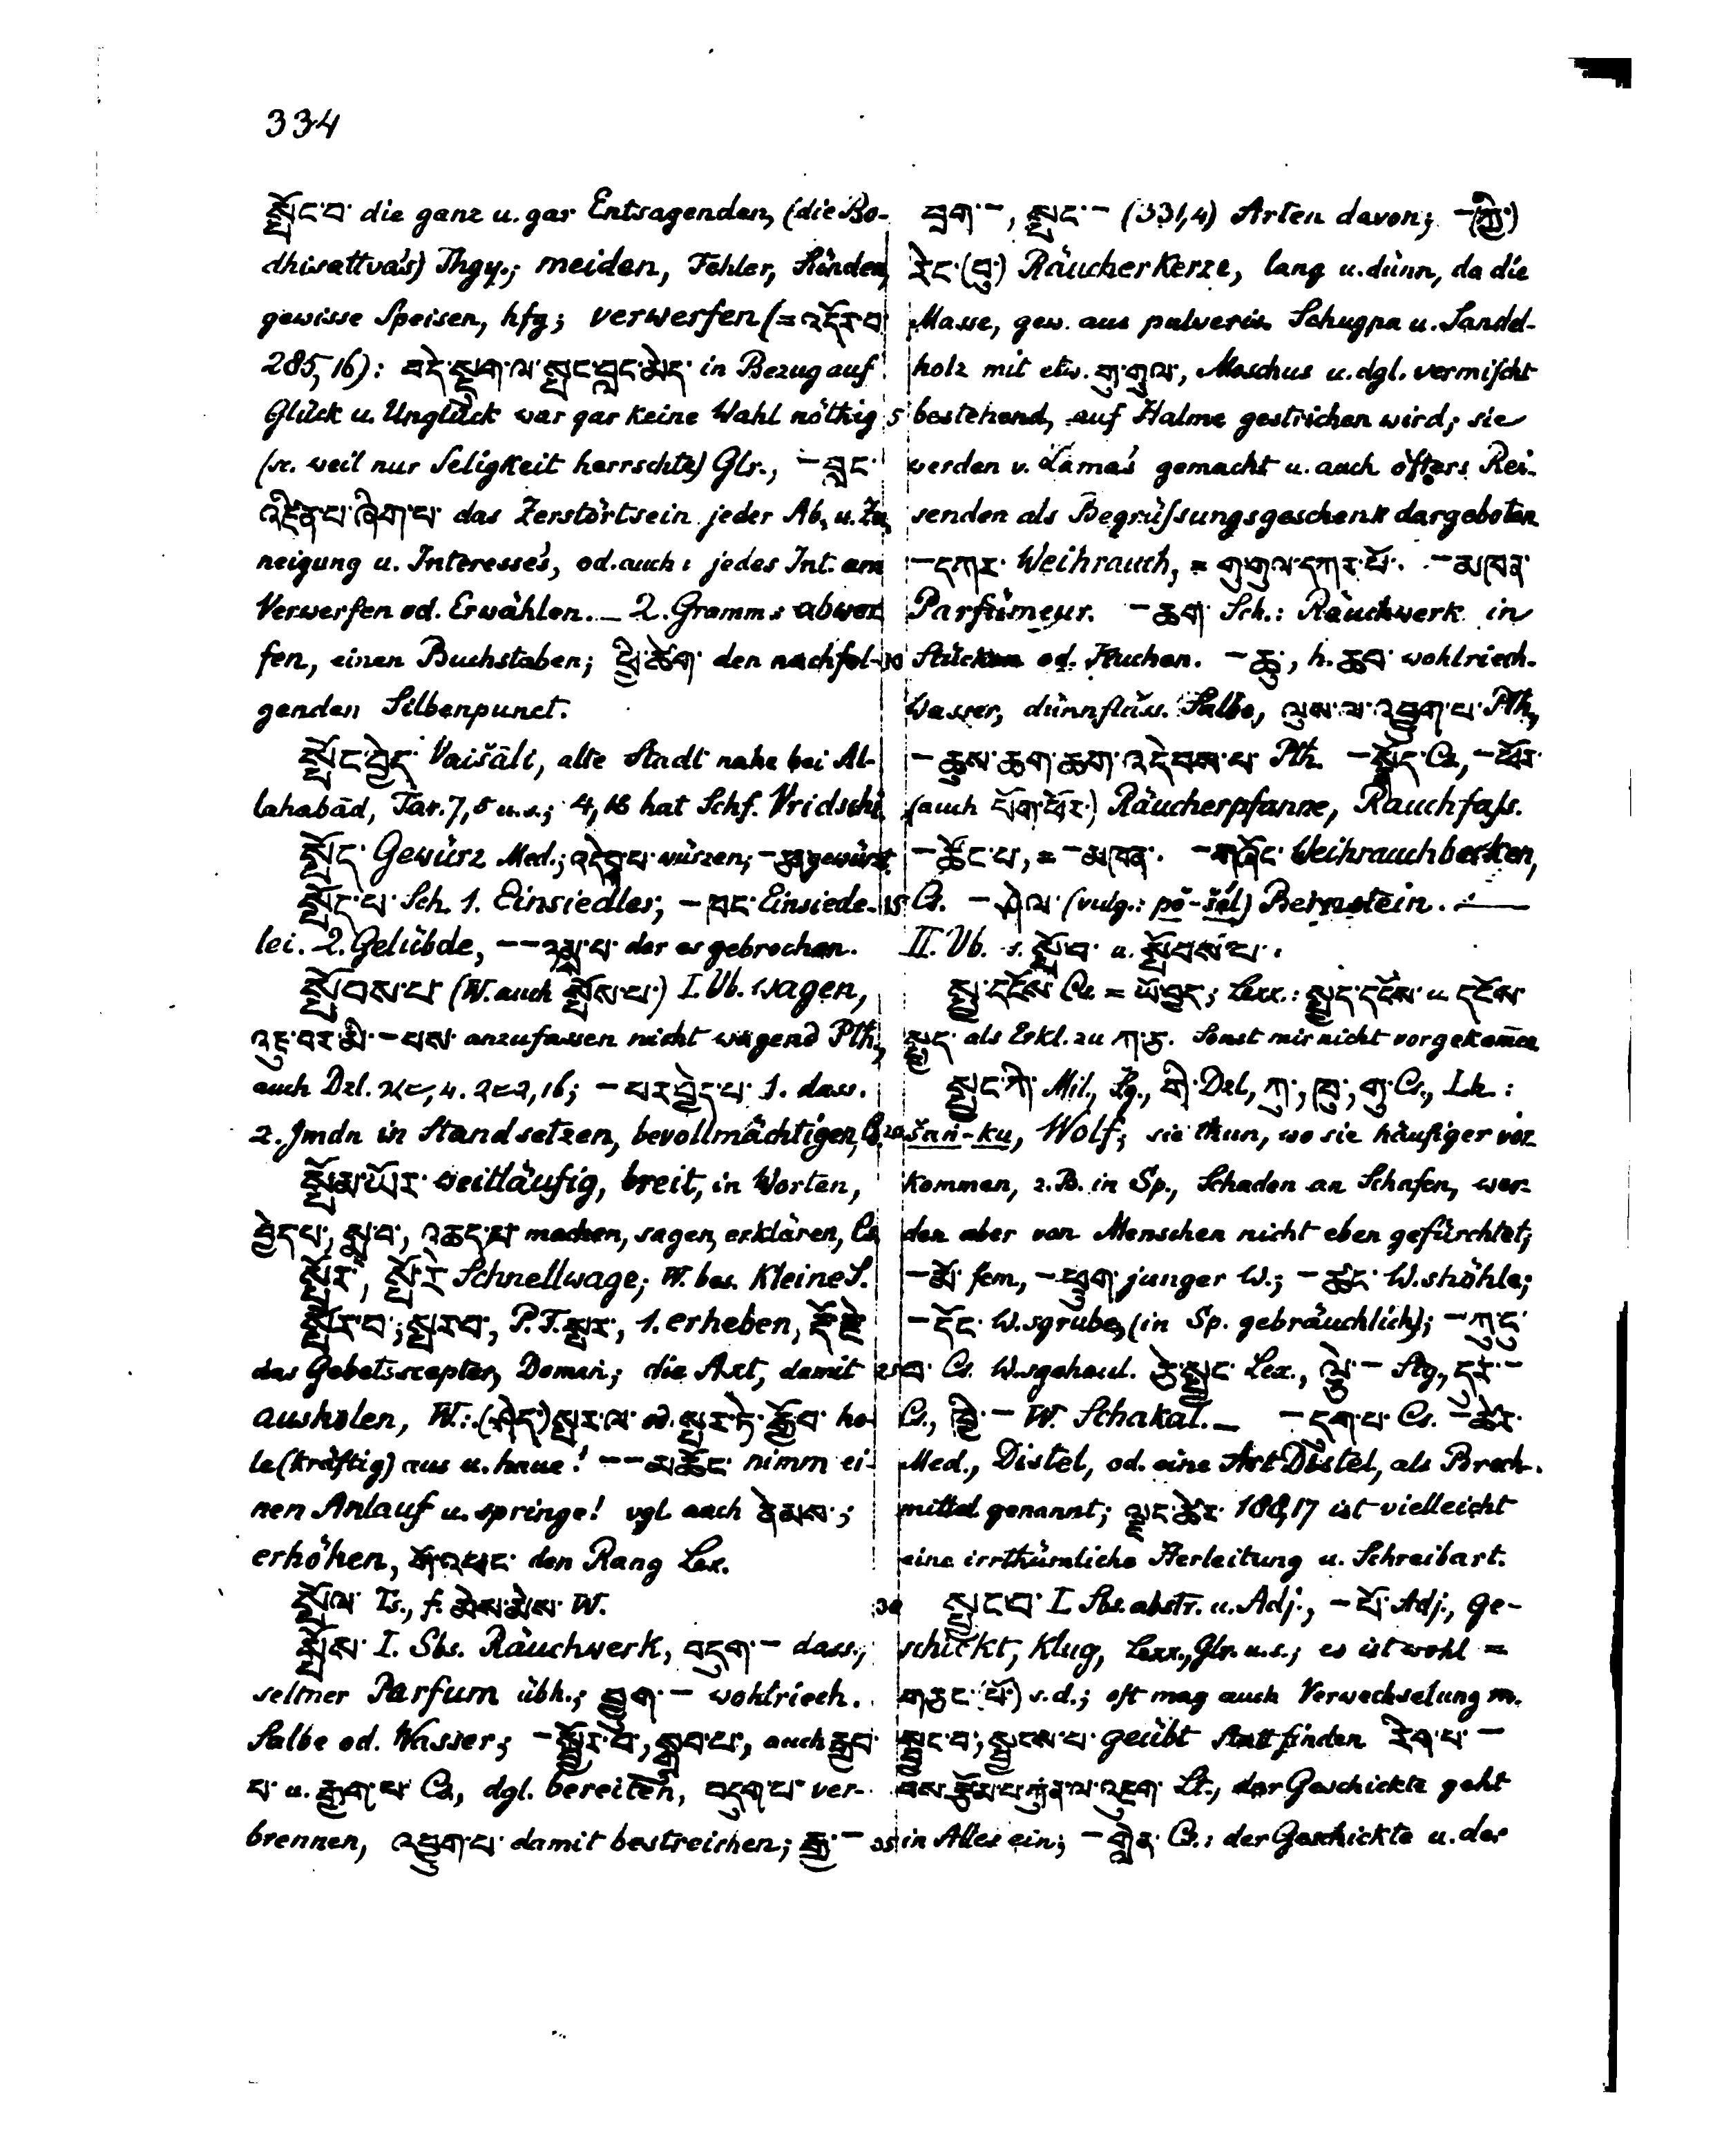 334
སྤོང་བ་ die ganz u. gar Entsagenden, (die Bo-
dhisattva's) Thgy.; meiden, Fehler, Sünden,
gewisse Speisen, hfg; verwerfen (= འདོར་བ
285,16): བདེ་སྡུག་ལ་སྤང་བླང་མེད་ in Bezug auf
Glück u. Unglück war gar keine Wahl nöthig
(sc. weil nur Seligkeit herrschte) Glr., – བླང་
འཛིན་པ་ཞིག་པ་ das Zerstörtsein jeder Ab, u. Zu,
neigung u. Interesse's, od. auch: jedes Int. am
Verwerfen od. Erwählen. – 2. Gramm: abwer
fen, einen Buchstaben; ཕྱི་ཚེག་ den nachfol-
genden Silbenpunct.
སྤོང་བྱེད་ Vaišālī, alte Stadt nahe bei Al-
lahabād, Tār. 7,5 u.s.; 4,16 hat Schf. Vridschi
སྤོད་ Gewürz Med.; འདེབ་པ་ würzen;
སྤོང་པ་ Sch. 1. Einsiedler; – བང་ Einsiede-
lei. 2. Gelübde, – – der es gebrochen.
སྤོབས་པ་ (W. auch སྤོས་པ་) I. Vb. wagen,
འཇུ་བར་མི་ – པས་ anzufassen nicht wagend Pth.,
auch Dzl. – པར་བྱེད་པ་ 1. dass.
2. Jmdn in Stand setzen, bevollmächtigen, Cs.
སྤོམ་ཡོར་ weitläufig, breit, in Worten,
བྱེད་པ་, སྨྲ་བ་, འཆད་པ་ machen, sagen, erklären, Cs.
སྤོར་, སྤོ་རེ་ Schnellwage; W. bes. kleine S.
སྤོར་བ་; སྤར་བ་, P. F. སྤར་, 1. erheben, རྡོ་རྗེ་
das Gebetsscepter, Doman; die Axt, damit
ausholen, W.: སྤར་ལ་ od. སྤར་ཏེ་རྒྱོབ་ ho-
le (kräftig) aus u. haue! – – མཆོང་ nimm ei-
nen Anlauf u. springe! vgl. auch སྙེམས་;
erhöhen, གོ་འཕང་ den Rang Lex.
སྤོལ་ Ts., f. མེས་མེས་ W.
སྤོས་ I. Sbs. Räuchwerk, བདུག་ – dass.,
seltner Parfum übh.; བྱུག་ – wohlriech.
Salbe od. Wasser; – སྦྱོར་བ་, སྒྲུབ་པ་, auch
པ་ u. Cs., dgl. bereiten, བདུག་པ་ ver-
brennen, འབྱུག་པ་ damit bestreichen; རྒྱ་ –
བག་ –, སྤང་ – (331,4) Arten davon; – (ཀྱི་)
རེང་(བུ་) Räucherkerze, lang u. dünn, da die
Masse, gew. aus pulveris. Schugpa u. Sandel-
holz mit etw. གུ་གུལ་, Moschus u. dgl. vermischt
5 bestehend, auf Halme gestrichen wird; sie
werden v. Lama's gemacht u. auch öfters Rei-
senden als Begrüssungsgeschenk dargeboten
– དཀར་ Weihrauch, = གུ་གུལ་དཀར་པོ་. – མཁན་
Parfümeur. – ཆག་ Sch.: Räuchwerk in
10 Stücken od. Kuchen. – ཆུ་, h. ཆབ་ wohlriech.
Wasser, dünnflüss. Salbe, ལུས་ལ་འབྱུག་པ་ Pth.,
– ཆུས་ཆག་ཆག་འདེབས་པ་ Pth. – སྣོད་ Cs., – ཕོར་
(auch པོག་ཕོར་) Räucherpfanne, Rauchfass.
– ཚོང་པ་, = – མཁན་. – གཞོང་ Weihrauchbecken,
15 Cs. – ཤེལ་ (vulg.: pö-šél) Bernstein. —
II. Vb. s. སྤོ་བ་ u. སྤོབས་པ་.
སྤྱ་དངོས་ Cs. = ཡོ་བྱད་; Lexx.: སྤྱད་དངོས་ u. དངོས་
སྤྱད་ als Erkl. zu ཀ་ཅ་. Sonst mir nicht vorgekom̄en
སྤྱང་ཀི་ Mil., Lg., གི་ Dzl., ཀུ་, ཁུ་, གུ་ Cs., Ld.:
20 šaṅ-ku, Wolf; sie thun, wo sie häufiger vor
kommen, z. B. in Sp., Schaden an Schafen, wer-
den aber von Menschen nicht eben gefürchtet;
– མོ་ fem., – ཕྲུག་ junger W.; – ཚང་ W.shöhle;
– དོང་ W.sgrube, (in Sp. gebräuchlich); – ངུ་
25 བ་ Cs. W.sgeheul. ཅེ་སྤྱང་ Lex., – Stg., དུར་ –
Cs., ཁྱི་ – W. Schakal. – – དུག་པ་ Cs. – ཚེར་
Med., Distel, od. eine Art Distel, als Brech-
mittel genannt; ལྕང་ཚེར་ 188,17 ist vielleicht
eine irrthümliche Herleitung u. Schreibart.
30 སྤྱང་བ་ I. Sbs. abstr. u. Adj., – པོ་ Adj., ge-
schickt, klug, Lexx., Glr. u. s.; es ist wohl =
གཅང་(པོ་) s. d.; oft mag auch Verwechselung m.
སྦྱང་བ་, སྦྱངས་པ་ geübt Statt finden རིག་པ་ –
བས་རྩོམ་པ་ཀུན་ལ་འཇུག་ Lt., der Geschickte geht
35 in Alles ein; – གླེན་ Cs.: der Geschickte u. der